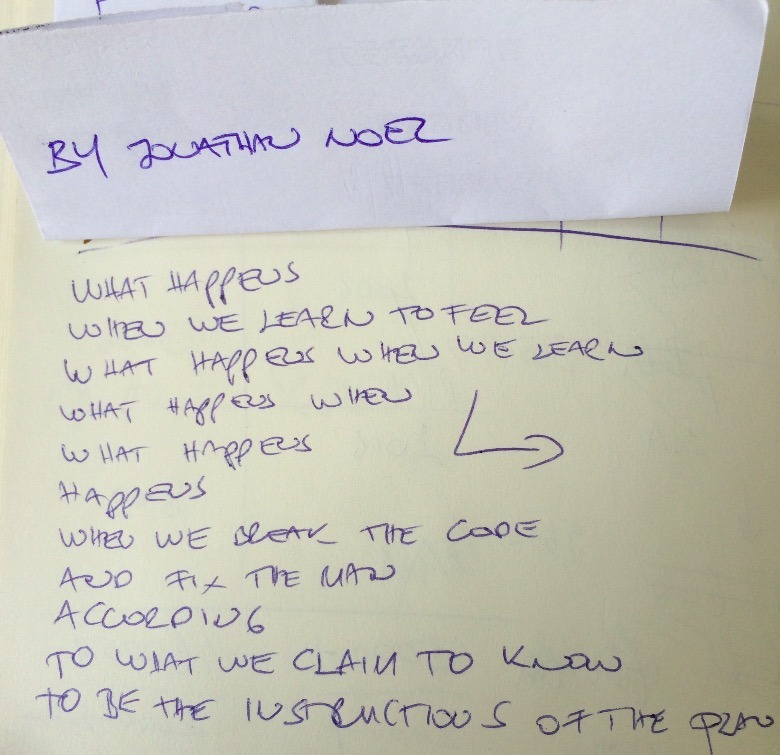 BY JONATHAN NOEL
WHAT HAPPENS
WHEN WE LEARN TO FEEL
WHAT HAPPENS WHEN WE LEARN
WHAT HAPPENS WHEN
WHAT HAPPENS
HAPPENS
WHEN WE BREAK THE CODE
AND FIX THE MAN
ACCORDING
TO WHAT WE CLAIM TO KNOW
TO BE THE INSTRUCTIONS OF THE PLAN